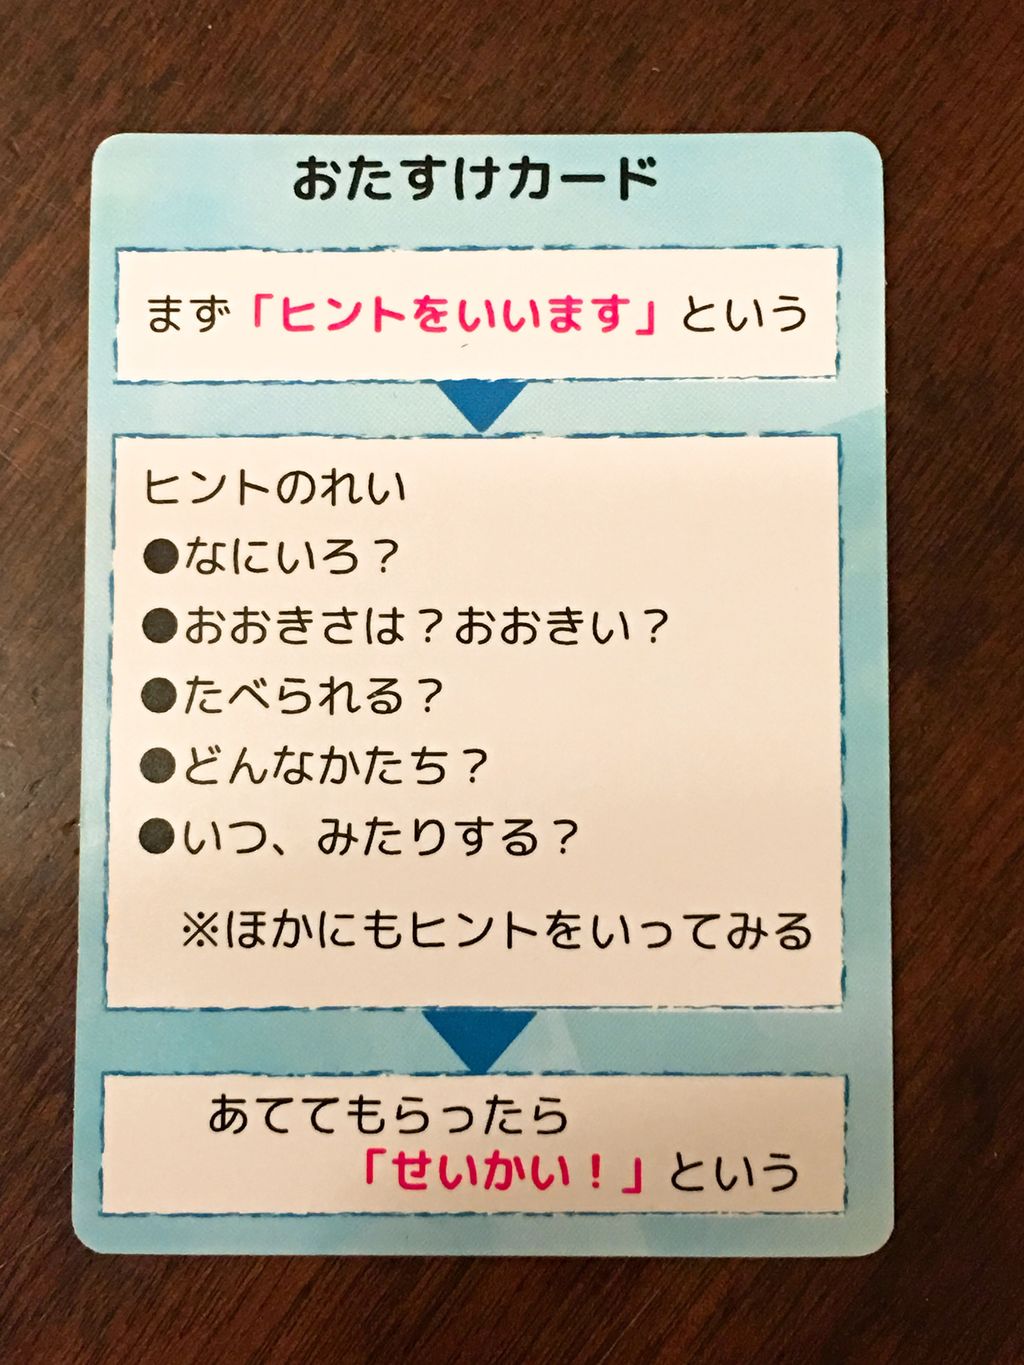 おたすけカード
まず「ヒントをいいます」という
ヒントのれい
●なにいろ？
●おおきさは？おおきい？
●たべられる？
●どんなかたち？
●いつ、みたりする？
※ほかにもヒントをいってみる
あててもらったら
「せいかい！」という